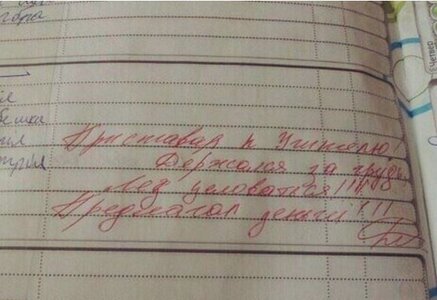 гора
Четверг
Приставал к Учителю!
Держался за грудь
Лез целоваться!!!!!
Предлагал деньги!!!